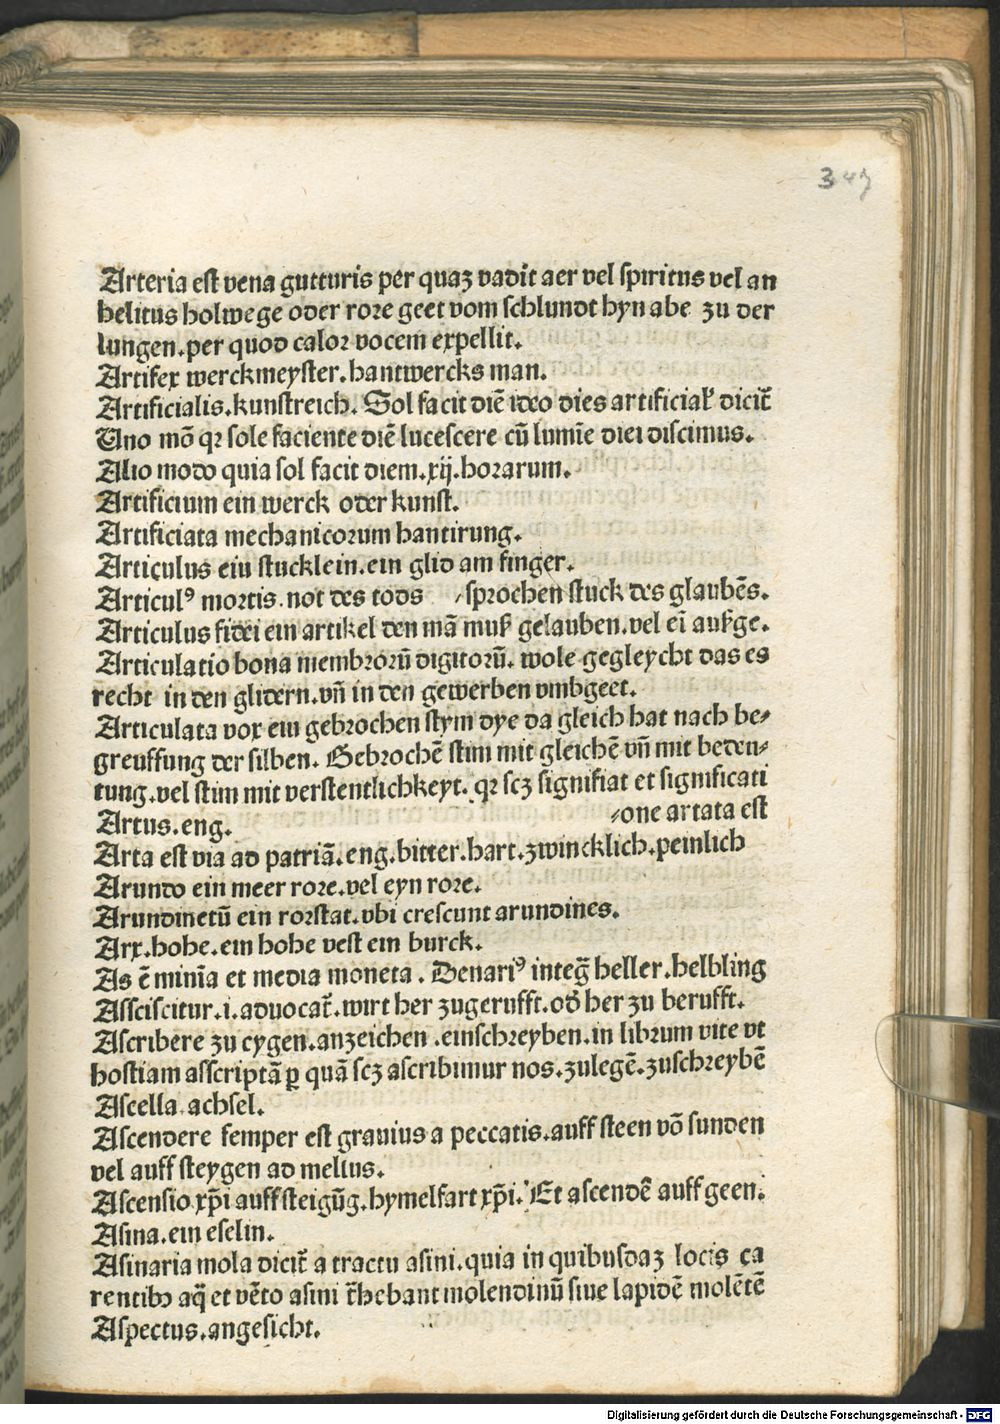 347
Arteria est vena gutturis per quaʒ vadit aer vel spiritus vel an
helitus holwege oder rore geet vom schlundt hyn abe zu der
lungen.per quod calor vocem expellit.
Artifex werckmeyster.hantwercks man.
Artificialis.kunstreich. Sol facit diē ideo dies artificial᷒ dicit̄
Uno mō qꝛ sole faciente diē lucescere cū lumīe diei discimus.
Alio modo quia sol facit diem.xij.horarum.
Artificium ein werck oder kunst.
Artificiata mechanicorum hantirung.
Articulus ein stucklein.ein glid am finger.
Articulꝰ mortis.not des tods ⸗sprochen stuck des glaubēs.
Articulus fidei ein artikel den mā muß gelauben.vel eī außge.
Articulatio bona membrorū digitorū. wole gegleycht das es
recht in den glidern.vn̄ in den gewerben vmbgeet.
Articulata vox ein gebrochen stym dye da gleich hat nach be⸗
greuffung der silben. Gebrochē stim mit gleichē vn̄ mit beden⸗
tung.vel stim mit verstentlichkeyt. qꝛ scʒ signifiat et significati
Artus.eng. ⸗one artata est
Arta est via ad patriā.eng.bitter.hart.zwincklich.peinlich
Arundo ein meer rore.vel eyn rore.
Arundinetū ein rorstat.vbi crescunt arundines.
Arx.hohe.ein hohe vest ein burck.
As ē minīa et media moneta. Denariꝰ inteḡ heller.helbling
Assciscitur.i.aduocat̄.wirt her zugerufft.od̄ her zu berufft.
Ascribere zu eygen.anzeichen.einschreyben.in librum vite vt
hostiam asscriptā ꝑ quā scʒ ascribimur nos.zulegē.zuschreybē
Ascella.achsel.
Ascendere semper est grauius a peccatis.auff steen vō sunden
vel auff steygen ad melius.
Ascensio xp̄i auffsteigūg.hymelfart xp̄i. Et ascendē auff geen.
Asina.ein eselin.
Asinaria mola dicit̄ a tractu asini.quia in quibusdaʒ locis ca
rentibꝰ aq̄ et vēto asini t̄hebant molendinū siue lapidē molētē
Aspectus.angesicht.
Digitalisierung gefördert durch die Deutsche Forschungsgemeinschaft - DFG